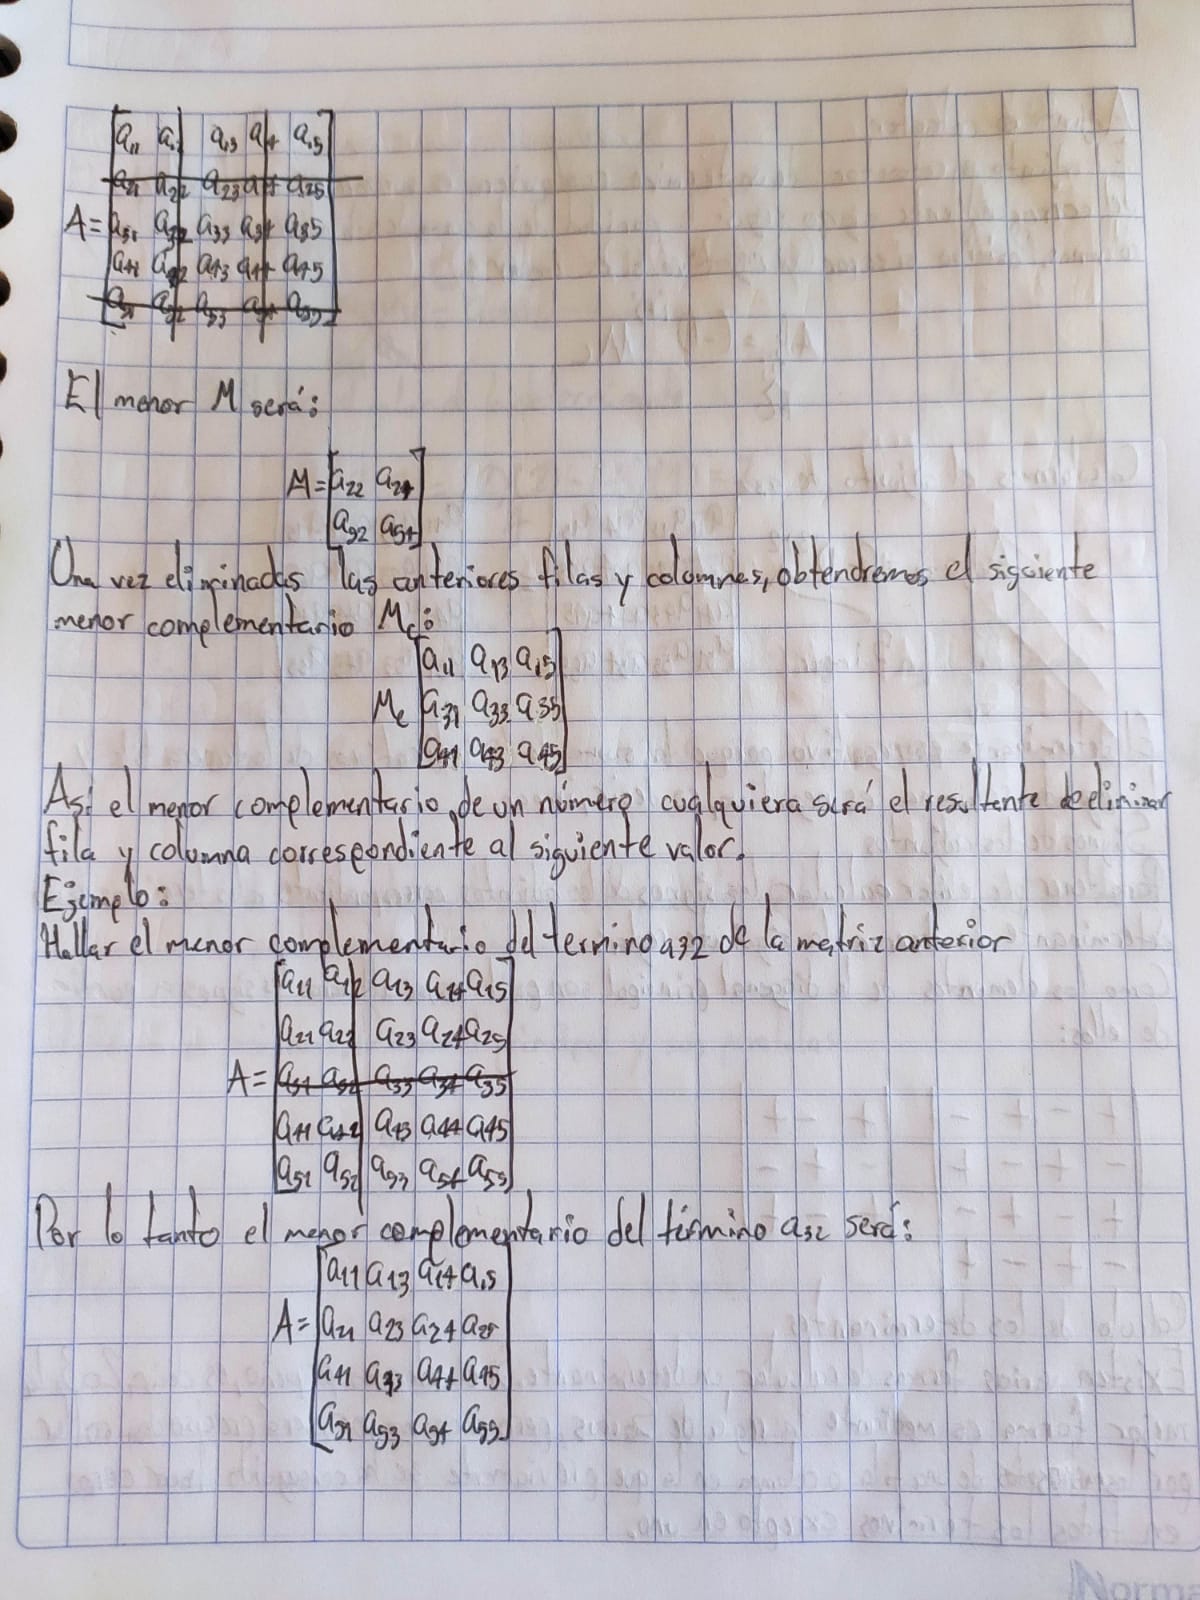 a11 a1 a13 a14 a15
a21 a22 a23 a24 a25
A= a31 a32 a33 a34 a35
a41 a42 a43 a44 a45
a51 a52 a53 a54 a55
El menor M será:
M= a22 a24
a52 a54
Una vez eliminadas las anteriores filas y columnas, obtendremos el siguiente
menor complementario Mc:
a11 a13 a15
Mc a31 a33 a35
a41 a43 a45
Así el menor complementario de un número cualquiera será el resultante de eliminar
fila y columna correspondiente al siguiente valor.
Ejemplo:
Hallar el menor complementario del termino a32 de la matriz anterior
a11 a12 a13 a14 a15
a21 a22 a23 a24 a25
A= a31 a32 a33 a34 a35
a41 a42 a43 a44 a45
a51 a52 a53 a54 a55
Por lo tanto el menor complementario del término a32 será:
a11 a13 a14 a15
A= a21 a23 a24 a25
a41 a43 a44 a45
a51 a53 a54 a55
Norma